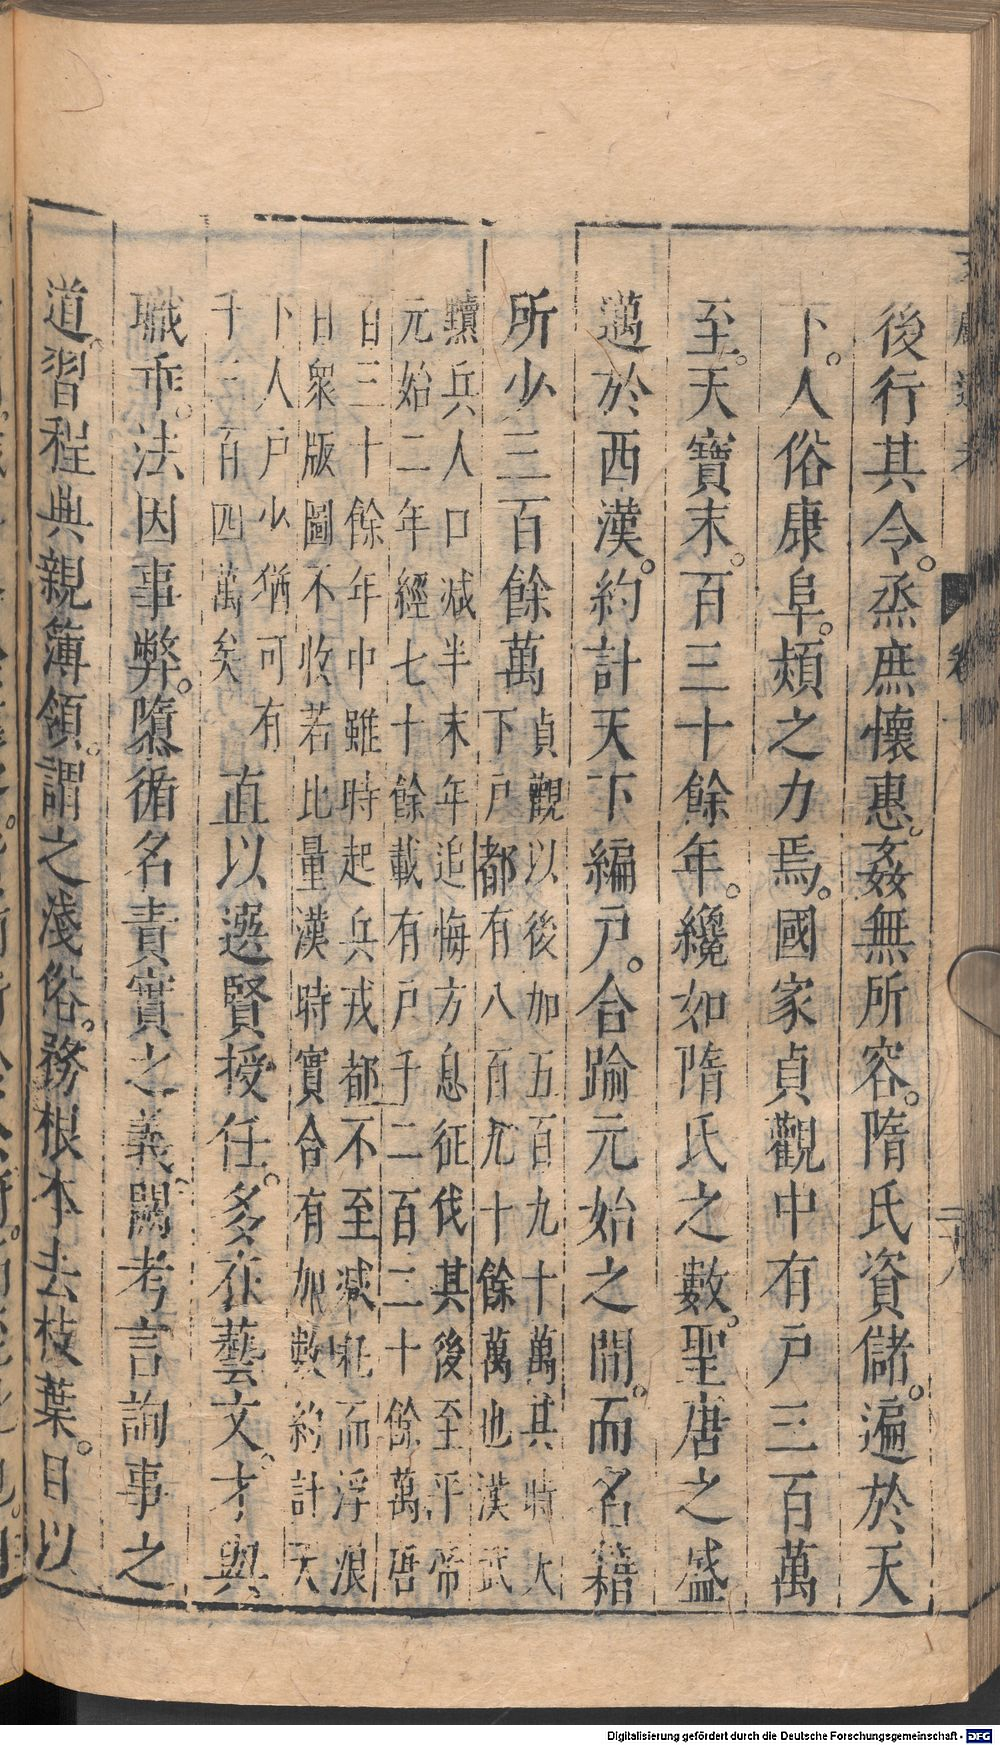 後行其令。烝庶懷惠。姦無所容。隋氏資儲。遍於天
下。人俗康阜。頻之力焉。國家貞觀中有戶三百萬
至。天寶末。百三十餘年。纔如隋氏之數。聖唐之盛。
邁於西漢。約計天下編戶。合踰元始之間。而名籍
所少三百餘萬
貞觀以後加五百九十萬其時天
下戶都有八百九十餘萬也漢武
黷兵人口減半末年追悔方息征伐其後至平帝
元始二年經七十餘載有戶千二百二十餘萬唐
百三十餘年中雖時起兵戎都不至減耗而浮浪
日衆版圖不收若比量漢時實合有加數約計天
下人戶少猶可有
千三百四萬矣
直以選賢授任。多在藝文。才與
職乖。法因事弊。隳循名責實之義。闕考言詢事之
道。習程典親簿領。謂之淺俗。務根本去枝葉。目以
Digitalisierung gefördert durch die Deutsche Forschungsgemeinschaft - DFG